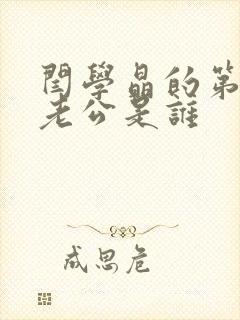 閆學晶的第
老公是誰
成思危